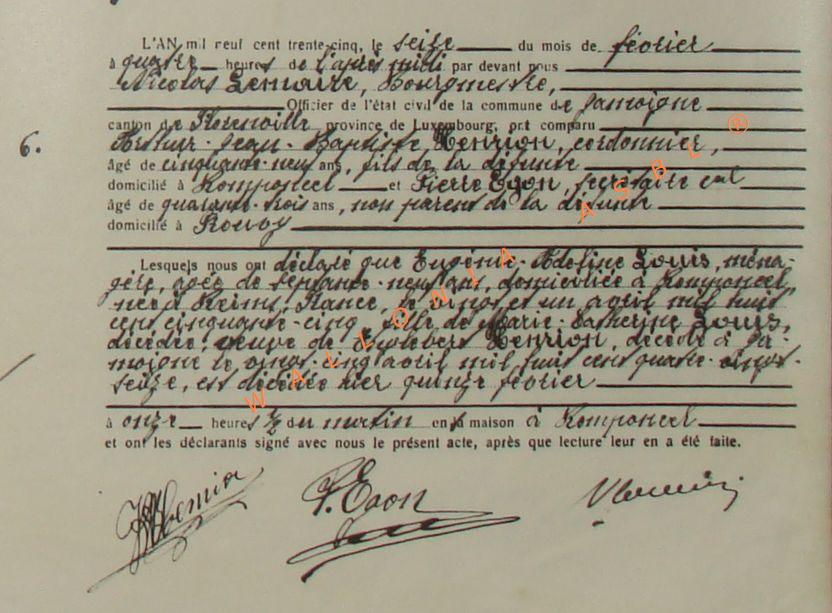 L'AN mil neuf cent trente-cinq, le seize du mois de février
à quatre heures de l'après midi par devant nous
Nicolas Lemaire, Bourgmestre,
Officier de l'état civil de la commune de Jamoigne
canton de Florenville, province de Luxembourg, ont comparu
6.
Arthur-Jean-Baptiste Henrion, cordonnier,
âgé de cinquante-neuf ans, fils de la défunte
domicilié à Romponcel et Pierre Egon, secrétaire cal
âgé de quarante-trois ans, non parent de la défunte
domicilié à Rouvoy
Lesquels nous ont déclaré que Eugénie-Adeline Louis, ména-
gère, agée de septante-neuf ans, domiciliée à Romponcel,
née à Reims, France, le vingt et un avril mil huit
cent cinquante-cinq, fille de Marie-Catherine Louis,
décédée, veuve de Henrion, décédé à Ja-
moigne le vingt-cinq avril mil huit cent quatre-vingt-
seize, est décédée hier quinze février
à onze heures ½ du matin en sa maison à Romponcel
et ont les déclarants signé avec nous le présent acte, après que lecture leur en a été faite.
P. Egon
WALLONIA ASBL ®